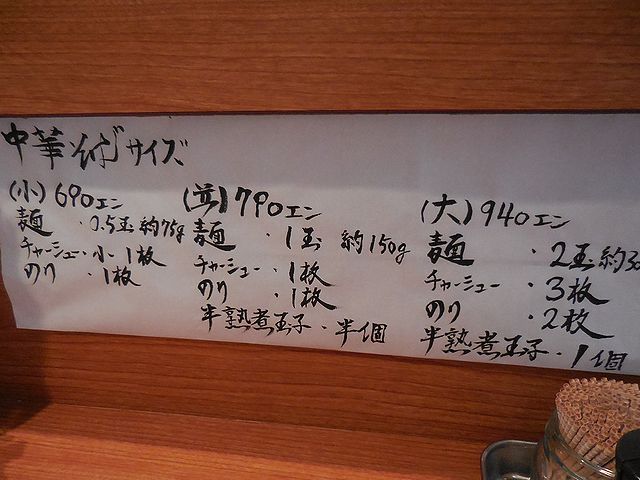 中華そばサイズ
(小)690エン
麺・0.5玉 約75g
チャーシュー・小1枚
のり・1枚
(並)790エン
麺・1玉 約150g
チャーシュー・1枚
のり・1枚
半熟煮玉子・半個
(大)940エン
麺・2玉 約30
チャーシュー・3枚
のり・2枚
半熟煮玉子・1個